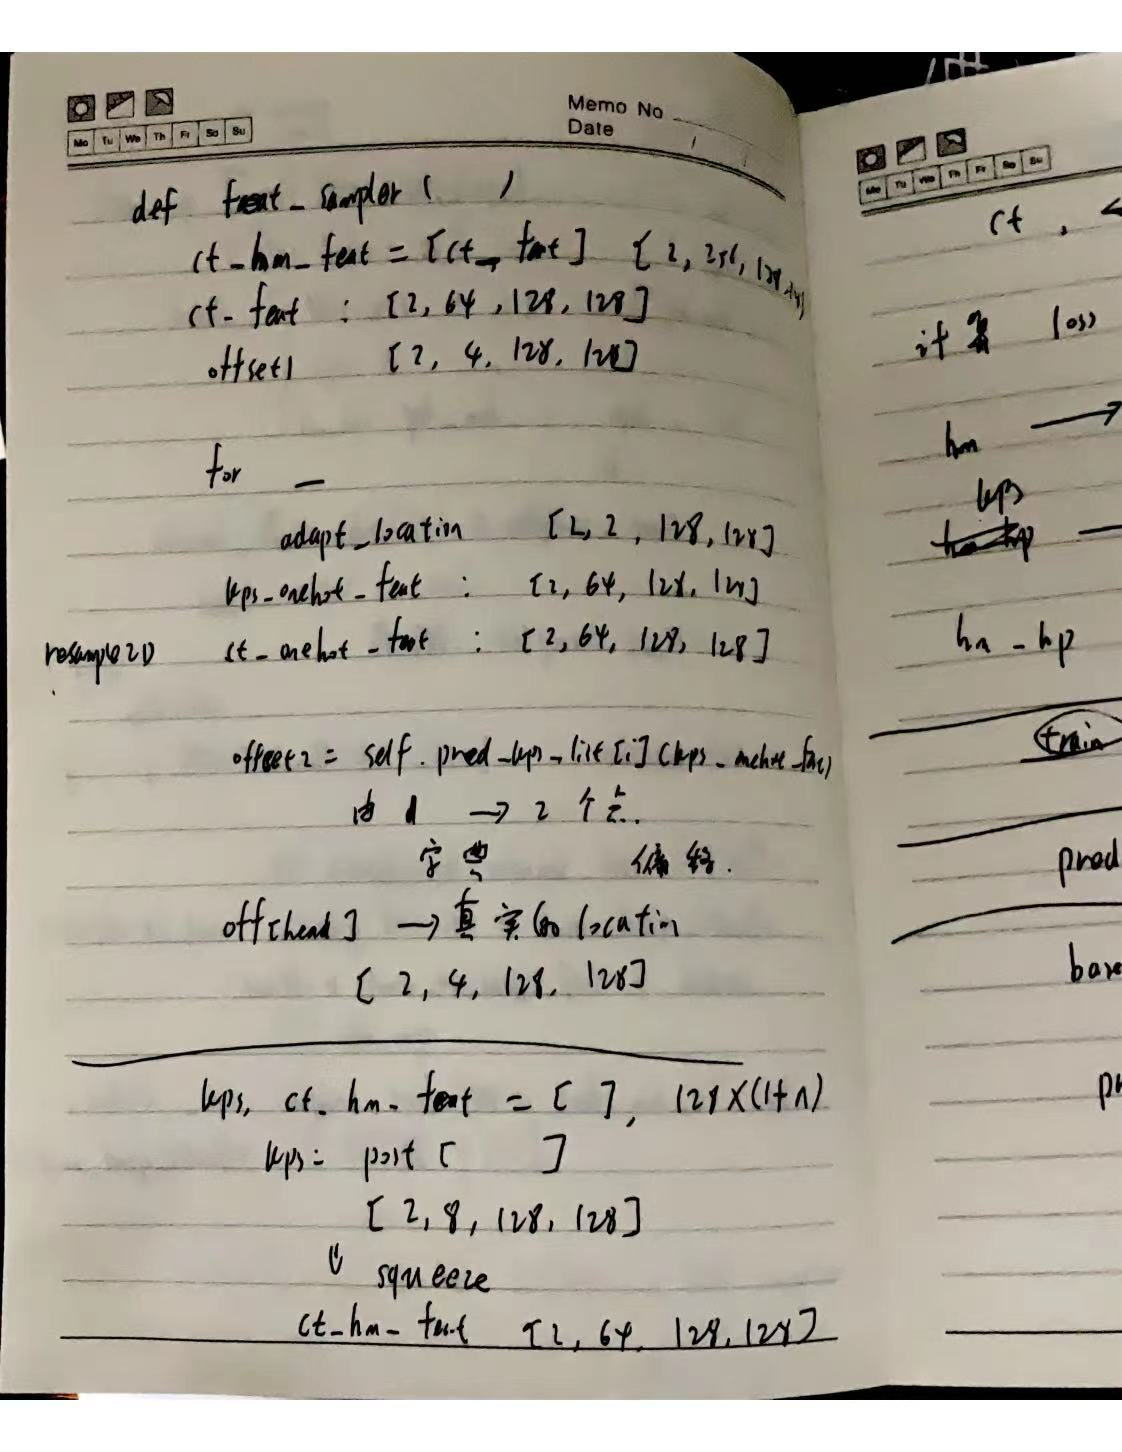 Memo No
Date
Mo Tu We Th Fr Sa Su
def feat_sampler ( )
ct_hm_feat = [ct_feat] [2, 256, 128,
ct_feat : [2, 64, 128, 128]
offset1 [2, 4, 128, 128]
for _
adapt_location [2, 2, 128, 128]
kps_onehot_feat : [2, 64, 128, 128]
resample2D ct_onehot_feat : [2, 64, 128, 128]
offset2 = self.pred_kps_list[i](kps_onehot_feat)
由 1 → 2 个
字典 偏移.
off[head] → 真实的 location
[2, 4, 128, 128]
kps, ct_hm_feat = [ ], 128×(1+n)
kps = post [ ]
[2, 8, 128, 128]
squeeze
ct_hm_feat [2, 64, 128, 128]
Mo Tu We Th Fr Sa Su
ct,
计算 loss
hm →
kps
hm_hp
train
pred
base
pr